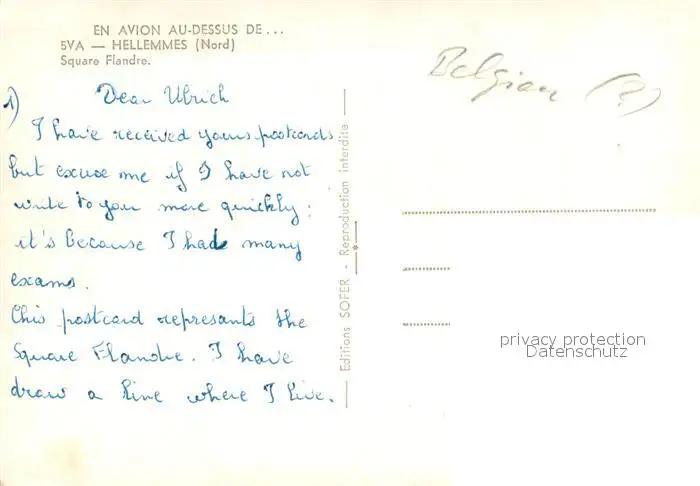 EN AVION AU-DESSUS DE...
5VA — HELLEMMES (Nord)
Square Flandre.
1)
Dear Ulrich
I have received yours postcards
but excuse me if I have not
write to you more quickly :
it's because I had many
exams.
This postcard represants the
Square Flandre. I have
draw a line where I live.
Editions SOFER - Reproduction interdite
Belgian (?)
privacy protection
Datenschutz